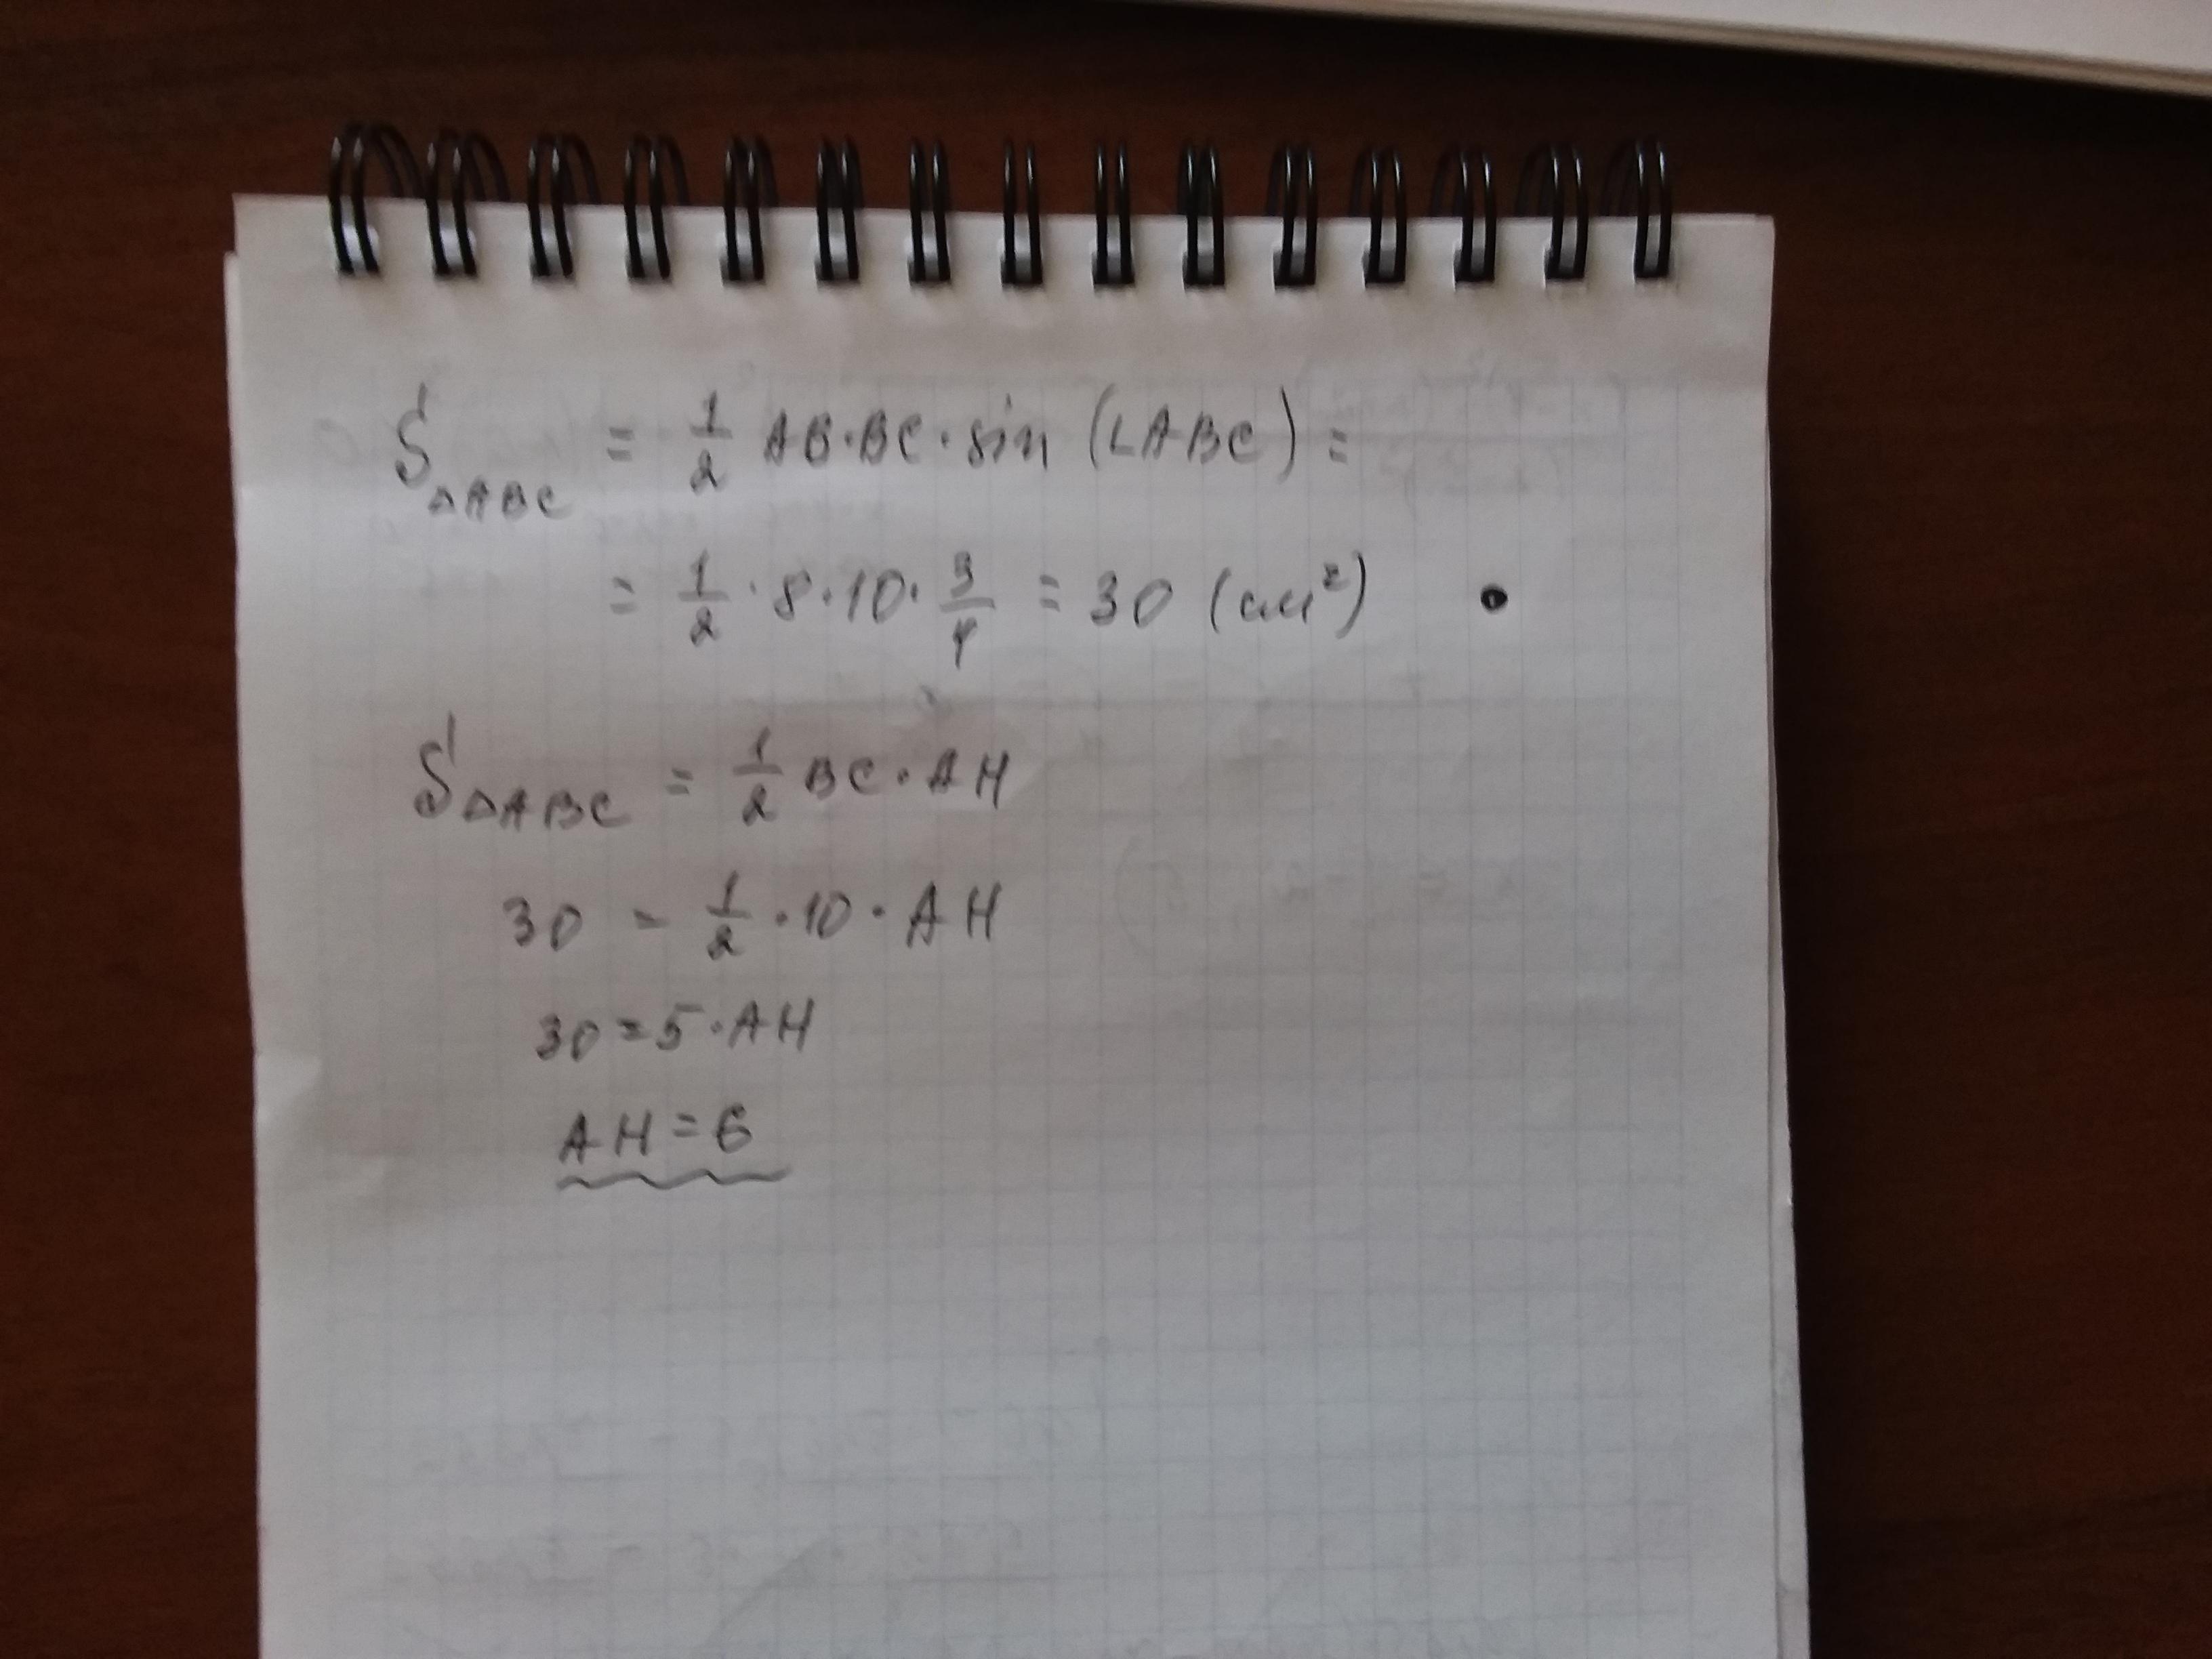 S△ABC = 1/2 AB·BC·sin(∠ABC) =
= 1/2 · 8·10· 3/4 = 30 (см²)
S△ABC = 1/2 BC·AH
30 = 1/2 ·10·AH
30=5·AH
AH=6